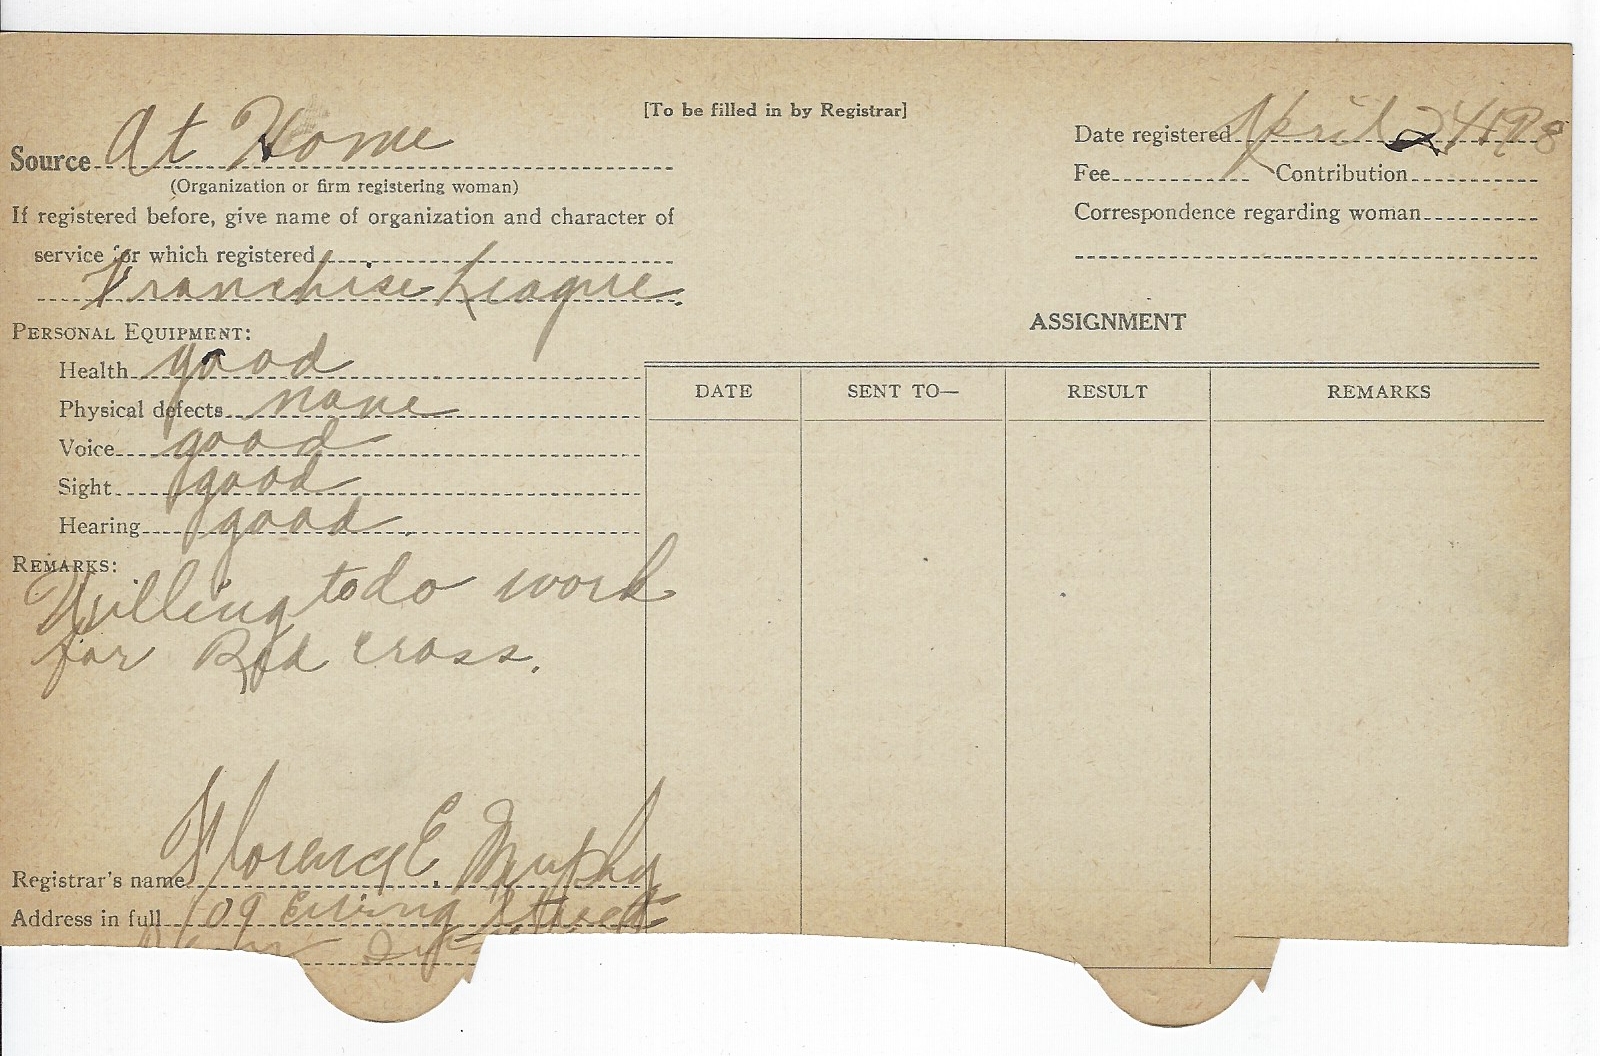 [To be filled in by Registrar]
Source At Home
(Organization or firm registering woman)
If registered before, give name of organization and character of
service for which registered
Franchise League.
Date registered April 24 1918
Fee Contribution
Correspondence regarding woman
PERSONAL EQUIPMENT:
Health good
Physical defects none
Voice good
Sight good
Hearing good
REMARKS:
Willing to do work
for Red Cross.
ASSIGNMENT
DATE SENT TO— RESULT REMARKS
Registrar's name Florence E. Murphy
Address in full 109 Ewing Street